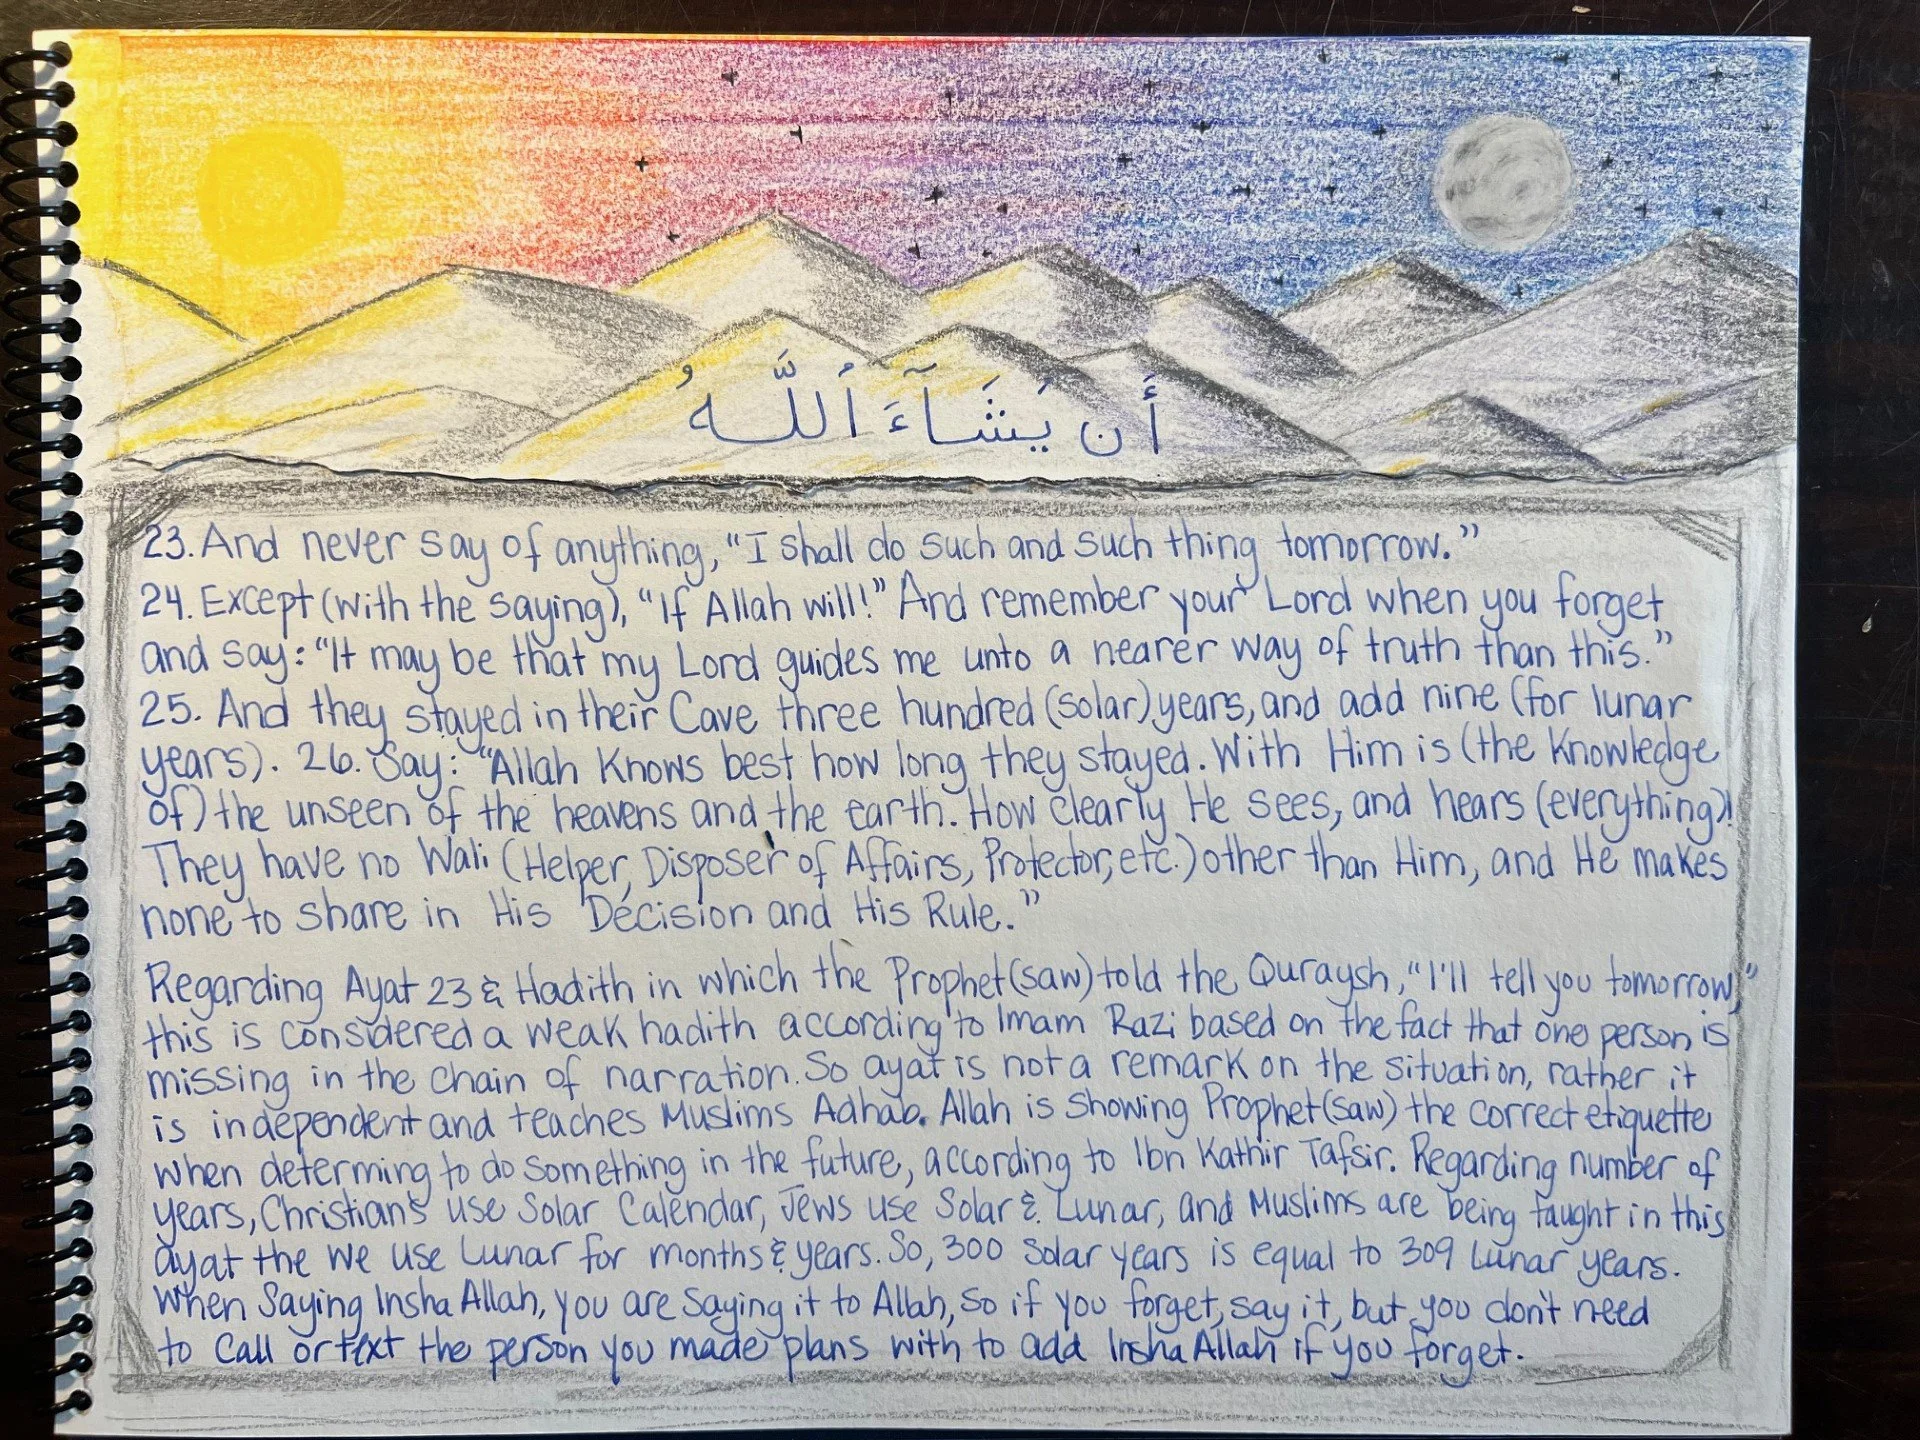 أَن يَشَآءَ ٱللَّهُ
23. And never say of anything, "I shall do such and such thing tomorrow."
24. Except (with the saying), "If Allah will!" And remember your Lord when you forget
and say: "It may be that my Lord guides me unto a nearer way of truth than this."
25. And they stayed in their Cave three hundred (solar) years, and add nine (for lunar
years). 26. Say: "Allah Knows best how long they stayed. With Him is (the Knowledge
of) the unseen of the heavens and the earth. How clearly He sees, and hears (everything)!
They have no Wali (Helper, Disposer of Affairs, Protector, etc.) other than Him, and He makes
none to share in His Decision and His Rule."
Regarding Ayat 23 & Hadith in which the Prophet (saw) told the Quraysh, "I'll tell you tomorrow,"
this is considered a weak hadith according to Imam Razi based on the fact that one person is
missing in the chain of narration. So ayat is not a remark on the situation, rather it
is independent and teaches Muslims Adhab. Allah is showing Prophet (saw) the correct etiquette
when determing to do something in the future, according to Ibn Kathir Tafsir. Regarding number of
years, Christians use Solar Calendar, Jews use Solar & Lunar, and Muslims are being taught in this
ayat the we use Lunar for months & years. So, 300 Solar years is equal to 309 Lunar years.
When Saying Insha Allah, you are saying it to Allah, so if you forget, say it, but you don't need
to call or text the person you made plans with to add Insha Allah if you forget.